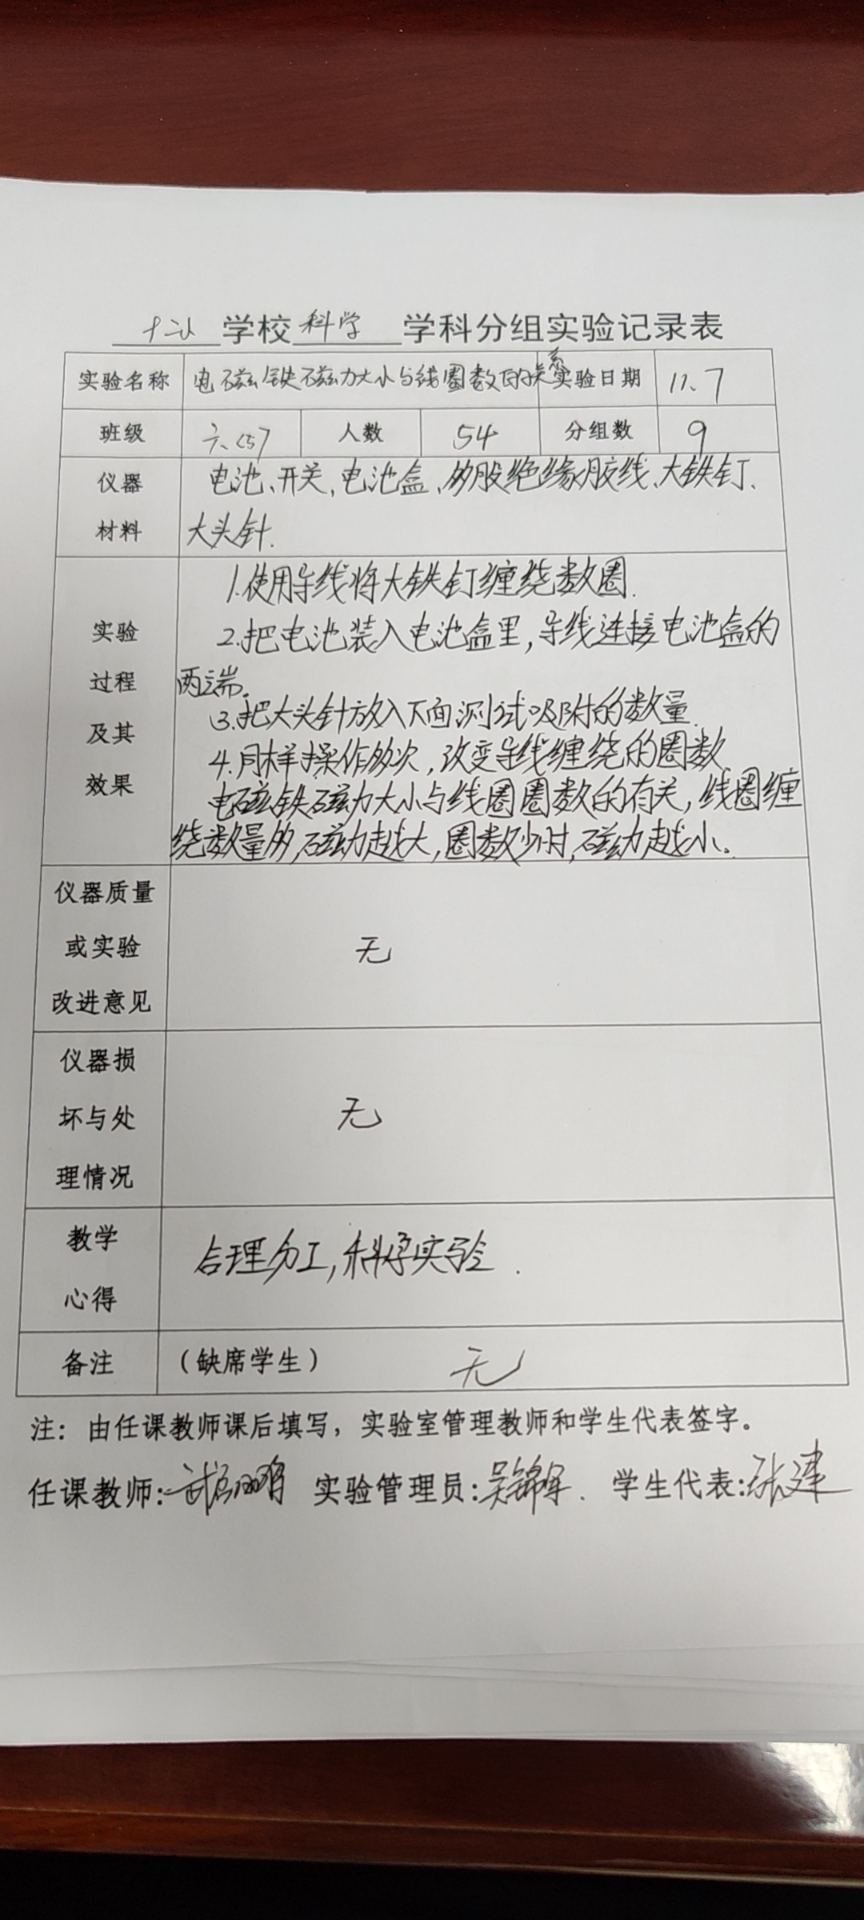 十二小 学校 科学 学科分组实验记录表
实验名称 电磁铁磁力大小与线圈数的关系 实验日期 11.7
班级 六.(5) 人数 54 分组数 9
仪器 电池、开关、电池盒、多股绝缘胶线、大铁钉、
材料 大头针.
1.使用导线将大铁钉缠绕数圈.
实验 2.把电池装入电池盒里,导线连接电池盒的
过程 两端.
及其 3.把大头针放入下面测试吸附的数量.
效果 4.同样操作多次,改变导线缠绕的圈数
电磁铁磁力大小与线圈圈数的有关,线圈缠
绕数量多,磁力越大,圈数少时,磁力越小。
仪器质量
或实验 无
改进意见
仪器损
坏与处 无
理情况
教学 合理分工,科学实验.
心得
备注 (缺席学生) 无
注: 由任课教师课后填写,实验室管理教师和学生代表签字。
任课教师: 实验管理员: 学生代表:张建